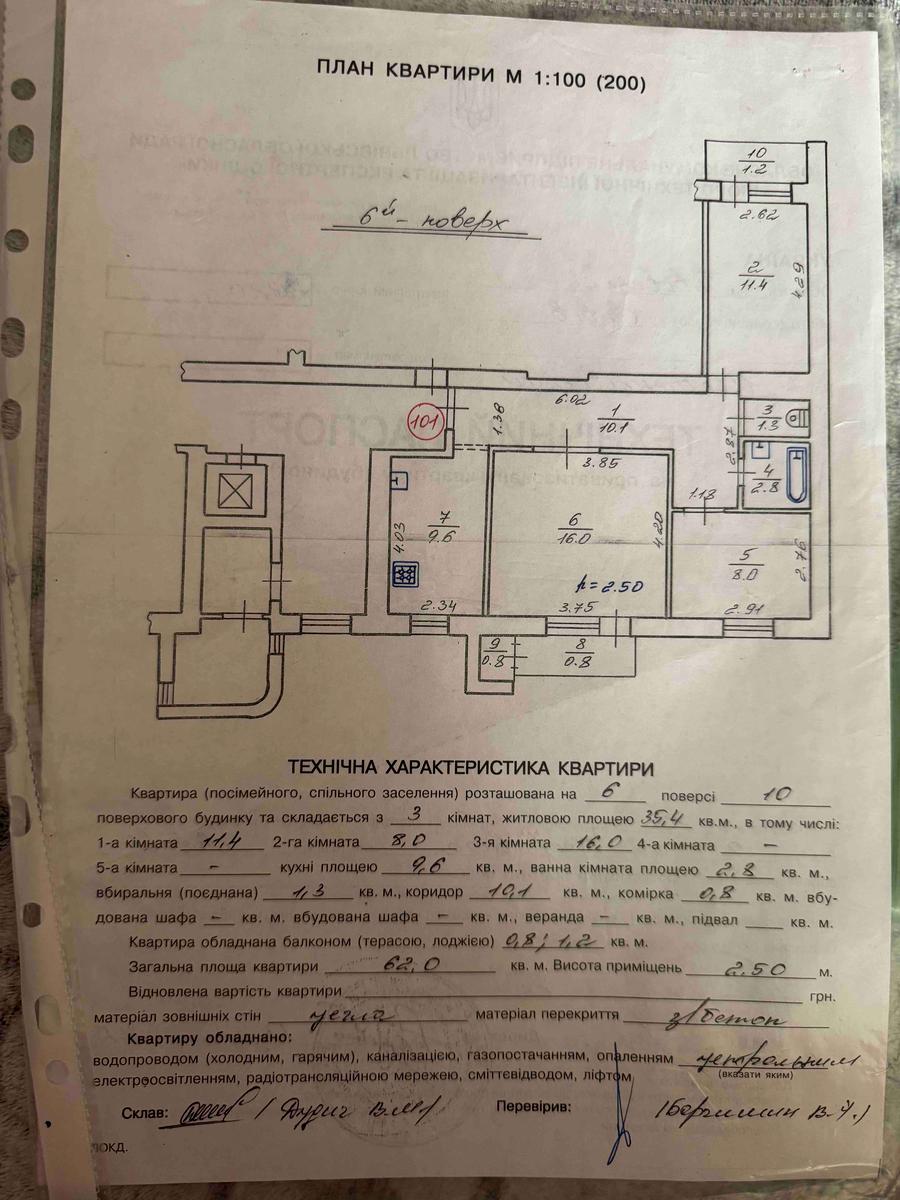 ПЛАН КВАРТИРИ М 1:100 (200)
6й - поверх
10
1.2
2.62
2
11.4
4.29
101
1.38
6.02
1
10.1
3
1.3
2.87
4
2.8
1.18
3.85
7
9.6
4.03
2.34
6
16.0
4.20
h=2.50
3.75
5
8.0
2.76
2.91
9
0.8
8
0.8
ТЕХНІЧНА ХАРАКТЕРИСТИКА КВАРТИРИ
Квартира (посімейного, спільного заселення) розташована на 6 поверсі 10
поверхового будинку та складається з 3 кімнат, житловою площею 35,4 кв.м., в тому числі:
1-а кімната 11,4 2-га кімната 8,0 3-я кімната 16,0 4-а кімната –
5-а кімната – кухні площею 9,6 кв. м., ванна кімната площею 2,8 кв. м.,
вбиральня (поєднана) 1,3 кв. м., коридор 10,1 кв. м., комірка 0,8 кв. м. вбу-
дована шафа – кв. м. вбудована шафа – кв. м., веранда – кв. м., підвал ____ кв. м.
Квартира обладнана балконом (терасою, лоджією) 0,8; 1,2 кв. м.
Загальна площа квартири 62,0 кв. м. Висота приміщень 2.50 м.
Відновлена вартість квартири ____ грн.
матеріал зовнішніх стін цегла матеріал перекриття з/бетон
Квартиру обладнано:
водопроводом (холодним, гарячим), каналізацією, газопостачанням, опаленням центральним
(вказати яким)
електроосвітленням, радіотрансляційною мережею, сміттєвідводом, ліфтом
Склав: / Дудич Перевірив:
ЛОКД.